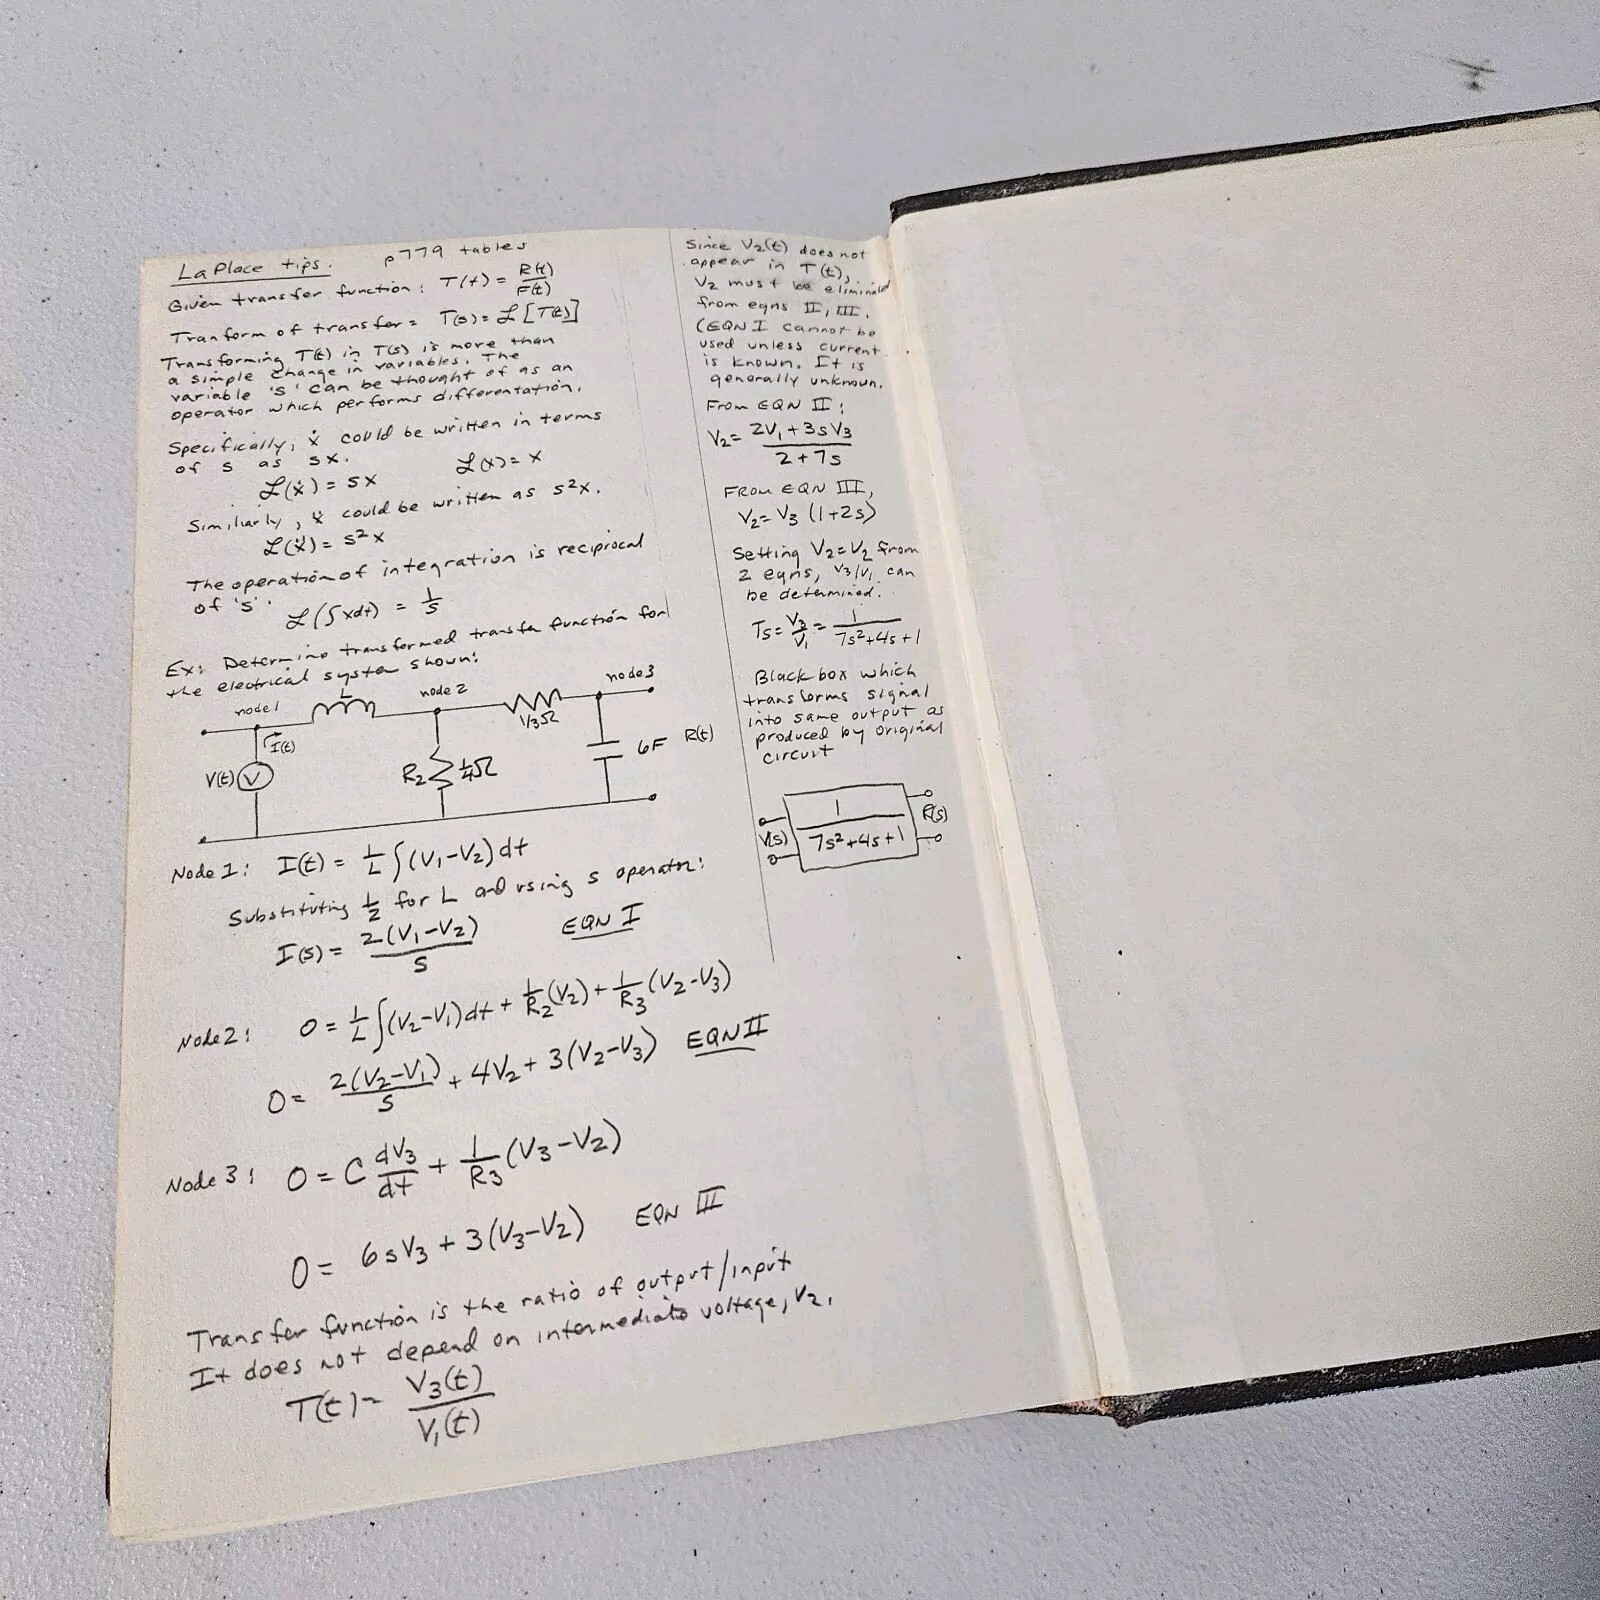 LaPlace tips. p779 tables
Given transfer function: T(t) = R(t)/F(t)
Tranform of transfer = T(s) = ℒ[T(t)]
Transforming T(t) in T(s) is more than
a simple change in variables. The
variable 's' can be thought of as an
operator which performs differentation.
Specifically, ẋ could be written in terms
of s as sx.
ℒ(ẋ) = sx ℒ(x) = x
Similiarly, ẍ could be written as s²x.
ℒ(ẍ) = s²x
The operation of integration is reciprocal
of 's'.
ℒ(∫xdt) = 1/s
Ex: Determine transformed transfer function for
the electrical system shown:
node 1 L node 2 node 3
I(t) 1/3Ω
V(t) V R₂ 1/4Ω 6F R(t)
Node 1: I(t) = 1/L ∫(V₁-V₂)dt
Substituting 1/2 for L and using s operator:
I(s) = 2(V₁-V₂)/s EQN I
Node 2: 0 = 1/L ∫(V₂-V₁)dt + 1/R₂(V₂) + 1/R₃(V₂-V₃)
0 = 2(V₂-V₁)/s + 4V₂ + 3(V₂-V₃) EQN II
Node 3: 0 = C dV₃/dt + 1/R₃(V₃-V₂)
0 = 6sV₃ + 3(V₃-V₂) EQN III
Transfer function is the ratio of output/input
It does not depend on intermediate voltage, V₂.
T(t) = V₃(t)/V₁(t)
Since V₂(t) does not
appear in T(t),
V₂ must be eliminated
from eqns II, III.
(EQN I cannot be
used unless current
is known. It is
generally unknown.
From EQN II:
V₂ = 2V₁+3sV₃/2+7s
FROM EQN III,
V₂ = V₃(1+2s)
Setting V₂=V₂ from
2 eqns, V₃/V₁ can
be determined.
Ts = V₃/V₁ = 1/7s²+4s+1
Black box which
transforms signal
into same output as
produced by original
circuit
V(s) 1/7s²+4s+1 R(s)